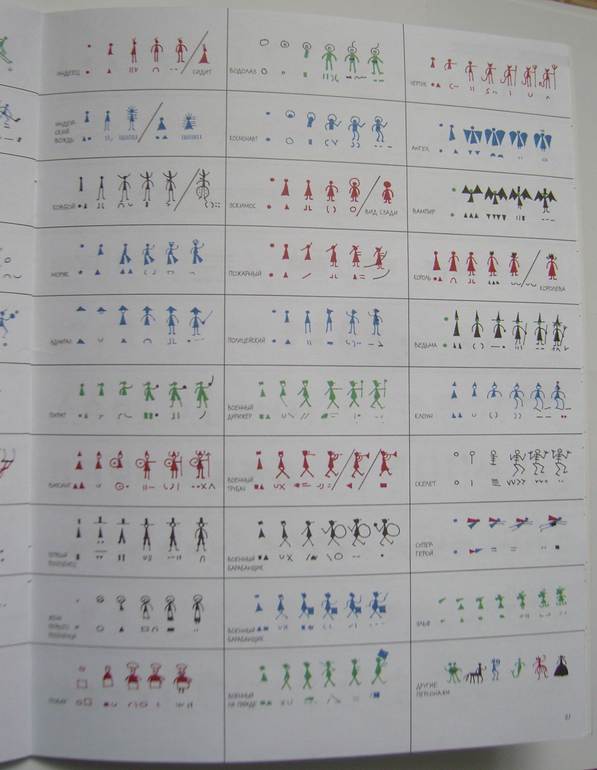 ИНДЕЕЦ
СИДИТ
ВОДОЛАЗ
ЧЕРТИК
ИНДЕЙ-
СКИЙ
ВОЖДЬ
КОСМОНАВТ
АНГЕЛ
КОВБОЙ
ЭСКИМОС
ВИД СЗАДИ
ВАМПИР
МОРЯК
ПОЖАРНЫЙ
КОРОЛЬ
КОРОЛЕВА
АДМИРАЛ
ПОЛИЦЕЙСКИЙ
ВЕДЬМА
ПИРАТ
ВОЕННЫЙ
ДИРИЖЕР
КЛОУН
ВИКИНГ
ВОЕННЫЙ
ТРУБАЧ
СКЕЛЕТ
ВОЕННЫЙ
БАРАБАНЩИК
СУПЕР
ГЕРОЙ
ЖЕНА
ПЕРВОГО
ВОЕННЫЙ
БАРАБАНЩИК
ЭЛЬФ
ПОВАР
ВОЕННЫЙ
НА ПАРАДЕ
ДРУГИЕ
ПЕРСОНАЖИ